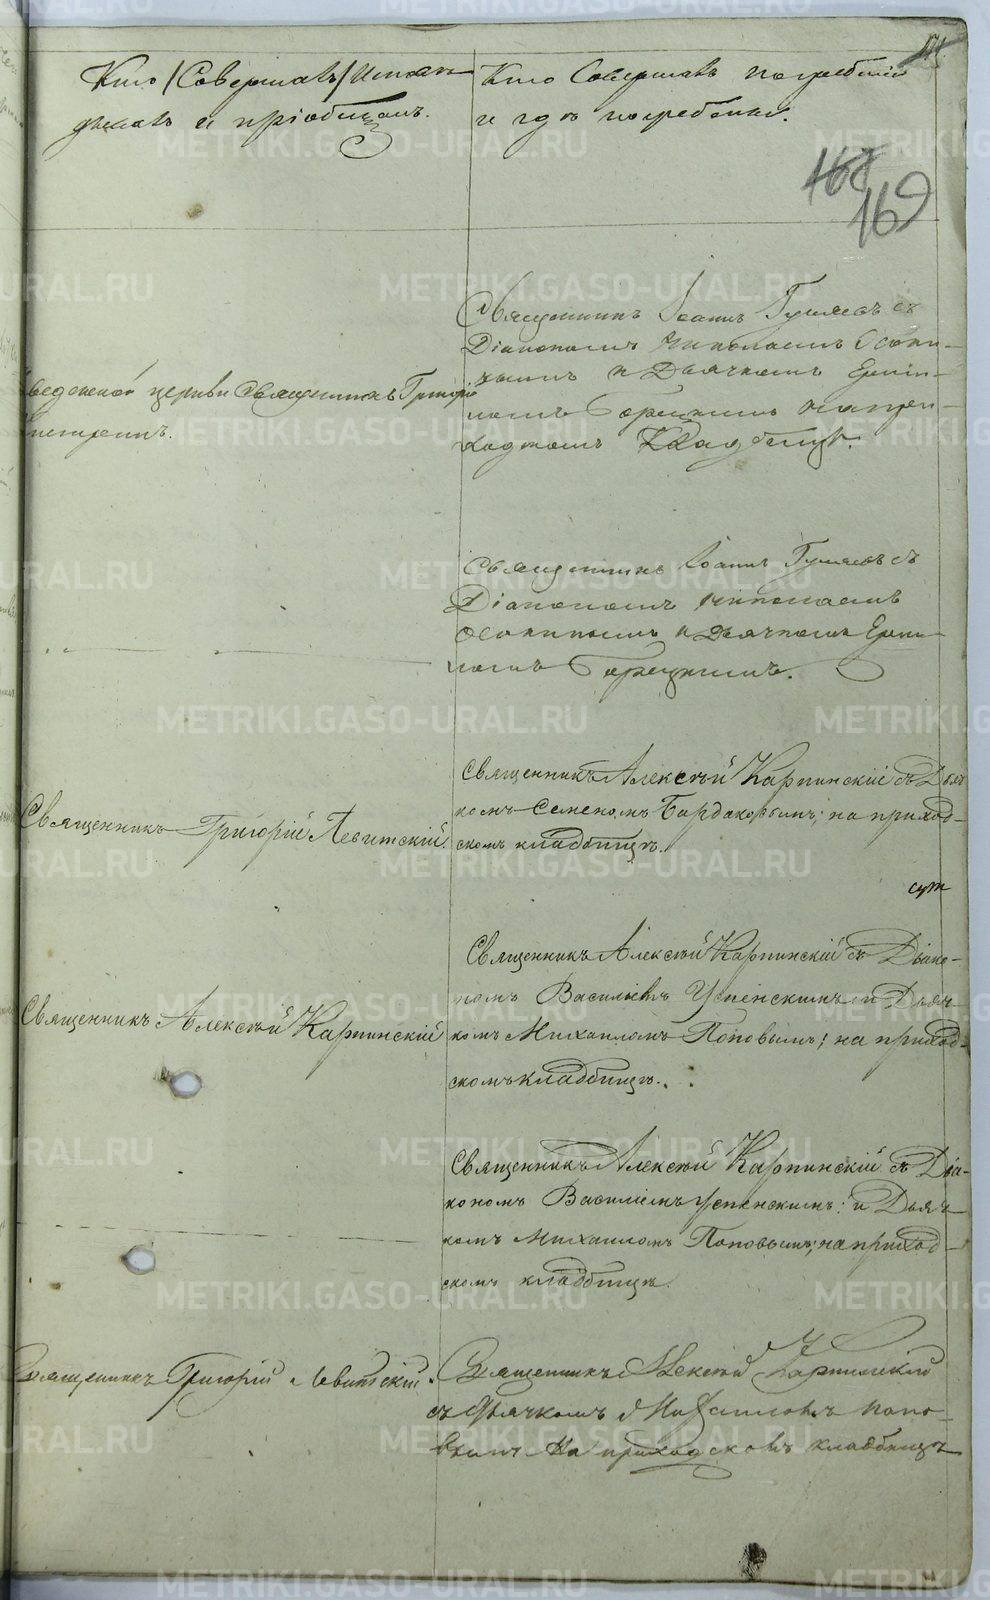 Кто /Совершалъ/ Исповѣ-
дывалъ и пріобщалъ.
Кто Совершалъ погребеніе
и гдѣ погребены.
168
169
Священникъ Іоаннъ Гуляевъ съ
Діакономъ Николаемъ Осопи-
нымъ и Дьячкомъ
Горецкимъ на при-
ходскомъ Кладбищѣ.
церкви Священникъ Григорій
Священникъ Іоаннъ Гуляевъ съ
Діакономъ Николаемъ
Осопинымъ и Дьячкомъ
Горецкимъ.
Священникъ Григорій Левитскій
Священникъ Алексѣй Карпинскій съ Дьяч
комъ Семеномъ Бардаковымъ; на приход-
скомъ кладбищѣ.
Священникъ Алексѣй Карпинскій
Священникъ Алексѣй Карпинскій съ Діако-
номъ Василіемъ Успенскимъ и Дьяч
комъ Михаиломъ Поповымъ; на приход-
скомъ кладбищѣ.
Священникъ Алексѣй Карпинскій съ Діа-
кономъ Василіемъ Успенскимъ: и Дьяч
комъ Михаиломъ Поповымъ; на приход-
скомъ кладбищѣ.
Священникъ Григорій Левитскій.
Священникъ Алексѣй Карпинскій
съ Дьячкомъ Михаиломъ Попо-
вымъ на приходскомъ кладбищѣ
METRIKI.GASO-URAL.RU